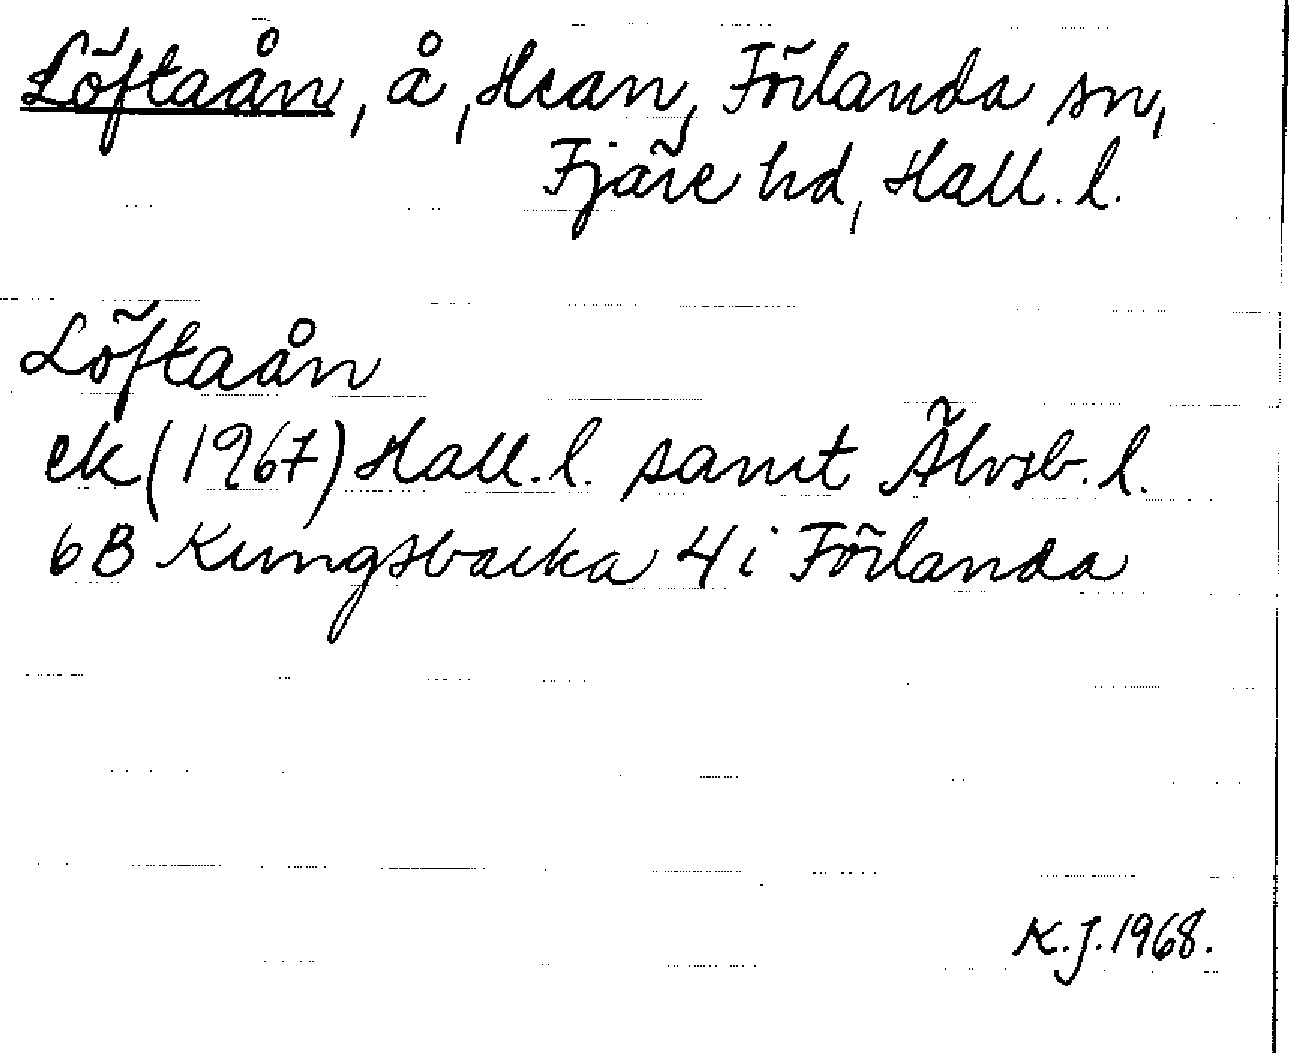 Löftaån, å, Hean, Förlanda sn,
Fjäre hd, Hall. l.
Löftaån
ek (1967) Hall. l. samt Älvsb. l.
6B Kungsbacka 4i Förlanda
K.J. 1968.